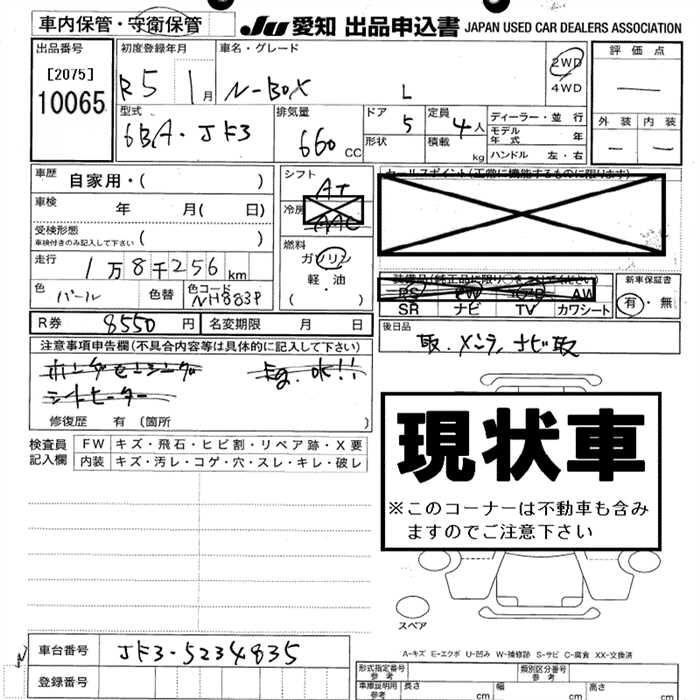 車内保管・守衛保管
JU 愛知 出品申込書 JAPAN USED CAR DEALERS ASSOCIATION
出品番号
[2075]
10065
初度登録年月
R5 1月
車名・グレード
N-BOX L
2WD
4WD
評価点
外装 内装
型式
6BA・JF3
排気量
660 CC
ドア
5
形状
定員
4人
積載 kg
ディーラー・並行
モデル年式 年
ハンドル 左・右
車歴 自家用・( )
車検 年 月( 日)
受検形態
車検付きのみ記入して下さい ( )
走行 1万8千256km
色 パール 色替 色コード NH883P
シフト AT
冷房 AAC
燃料
ガソリン
軽油
( ・ )
セールスポイント(正常に機能するものに限ります)
装備品(純正品に限り○をつけてください)
PS PW AW
SR ナビ TV カワシート
新車保証書
有・無
R券 8550円 名変期限 月 日
後日品
取、メンテ、ナビ取
注意事項申告欄(不具合内容等は具体的に記入して下さい)
ホンダセンシング
シートヒーター
修復歴 有 (箇所 )
検査員記入欄
FW キズ・飛石・ヒビ割・リペア跡・X要
内装 キズ・汚レ・コゲ・穴・スレ・キレ・破レ
現状車
※このコーナーは不動車も含み
ますのでご注意下さい
スペア
A-キズ E-エクボ U-凹み W-補修跡 S-サビ C-腐食 XX-交換済
車台番号 JF3-5234835
登録番号
形式指定番号 参考
類別区分番号 参考
車庫証明用 参考
長さ cm 幅 cm 高さ cm